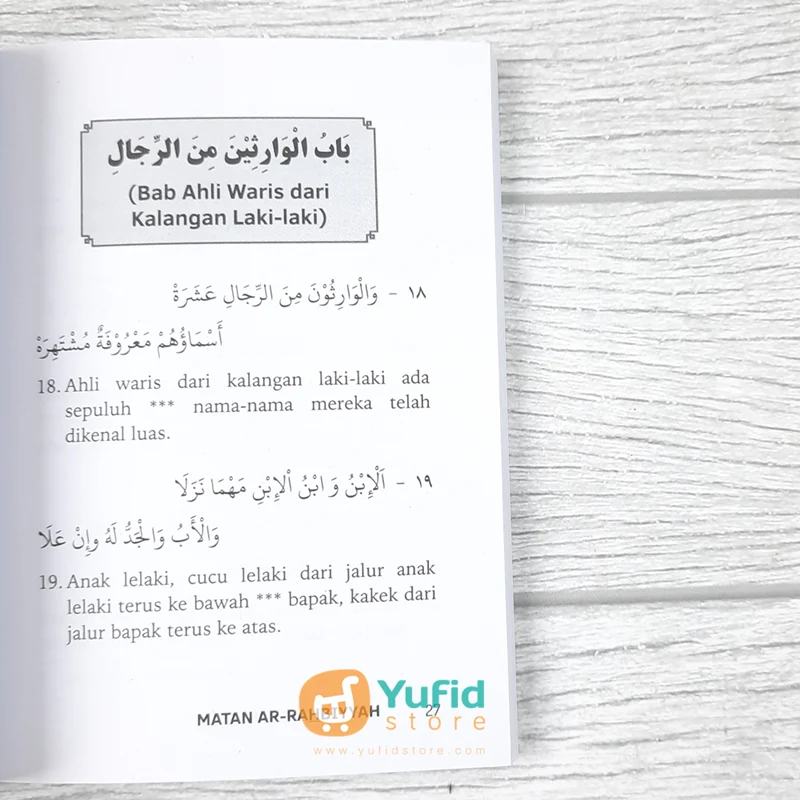 بَابُ الْوَارِثِيْنَ مِنَ الرِّجَالِ
(Bab Ahli Waris dari
Kalangan Laki-laki)
١٨ - وَالْوَارِثُوْنَ مِنَ الرِّجَالِ عَشَرَةْ
أَسْمَاؤُهُمْ مَعْرُوْفَةٌ مُشْتَهِرَةْ
18. Ahli waris dari kalangan laki-laki ada
sepuluh *** nama-nama mereka telah
dikenal luas.
١٩ - اَلْاِبْنُ وَ ابْنُ الْاِبْنِ مَهْمَا نَزَلَا
وَالْأَبُ وَالْجَدُّ لَهُ وَإِنْ عَلَا
19. Anak lelaki, cucu lelaki dari jalur anak
lelaki terus ke bawah *** bapak, kakek dari
jalur bapak terus ke atas.
MATAN AR-RAHBIYYAH 27
Yufid
store
www.yufidstore.com